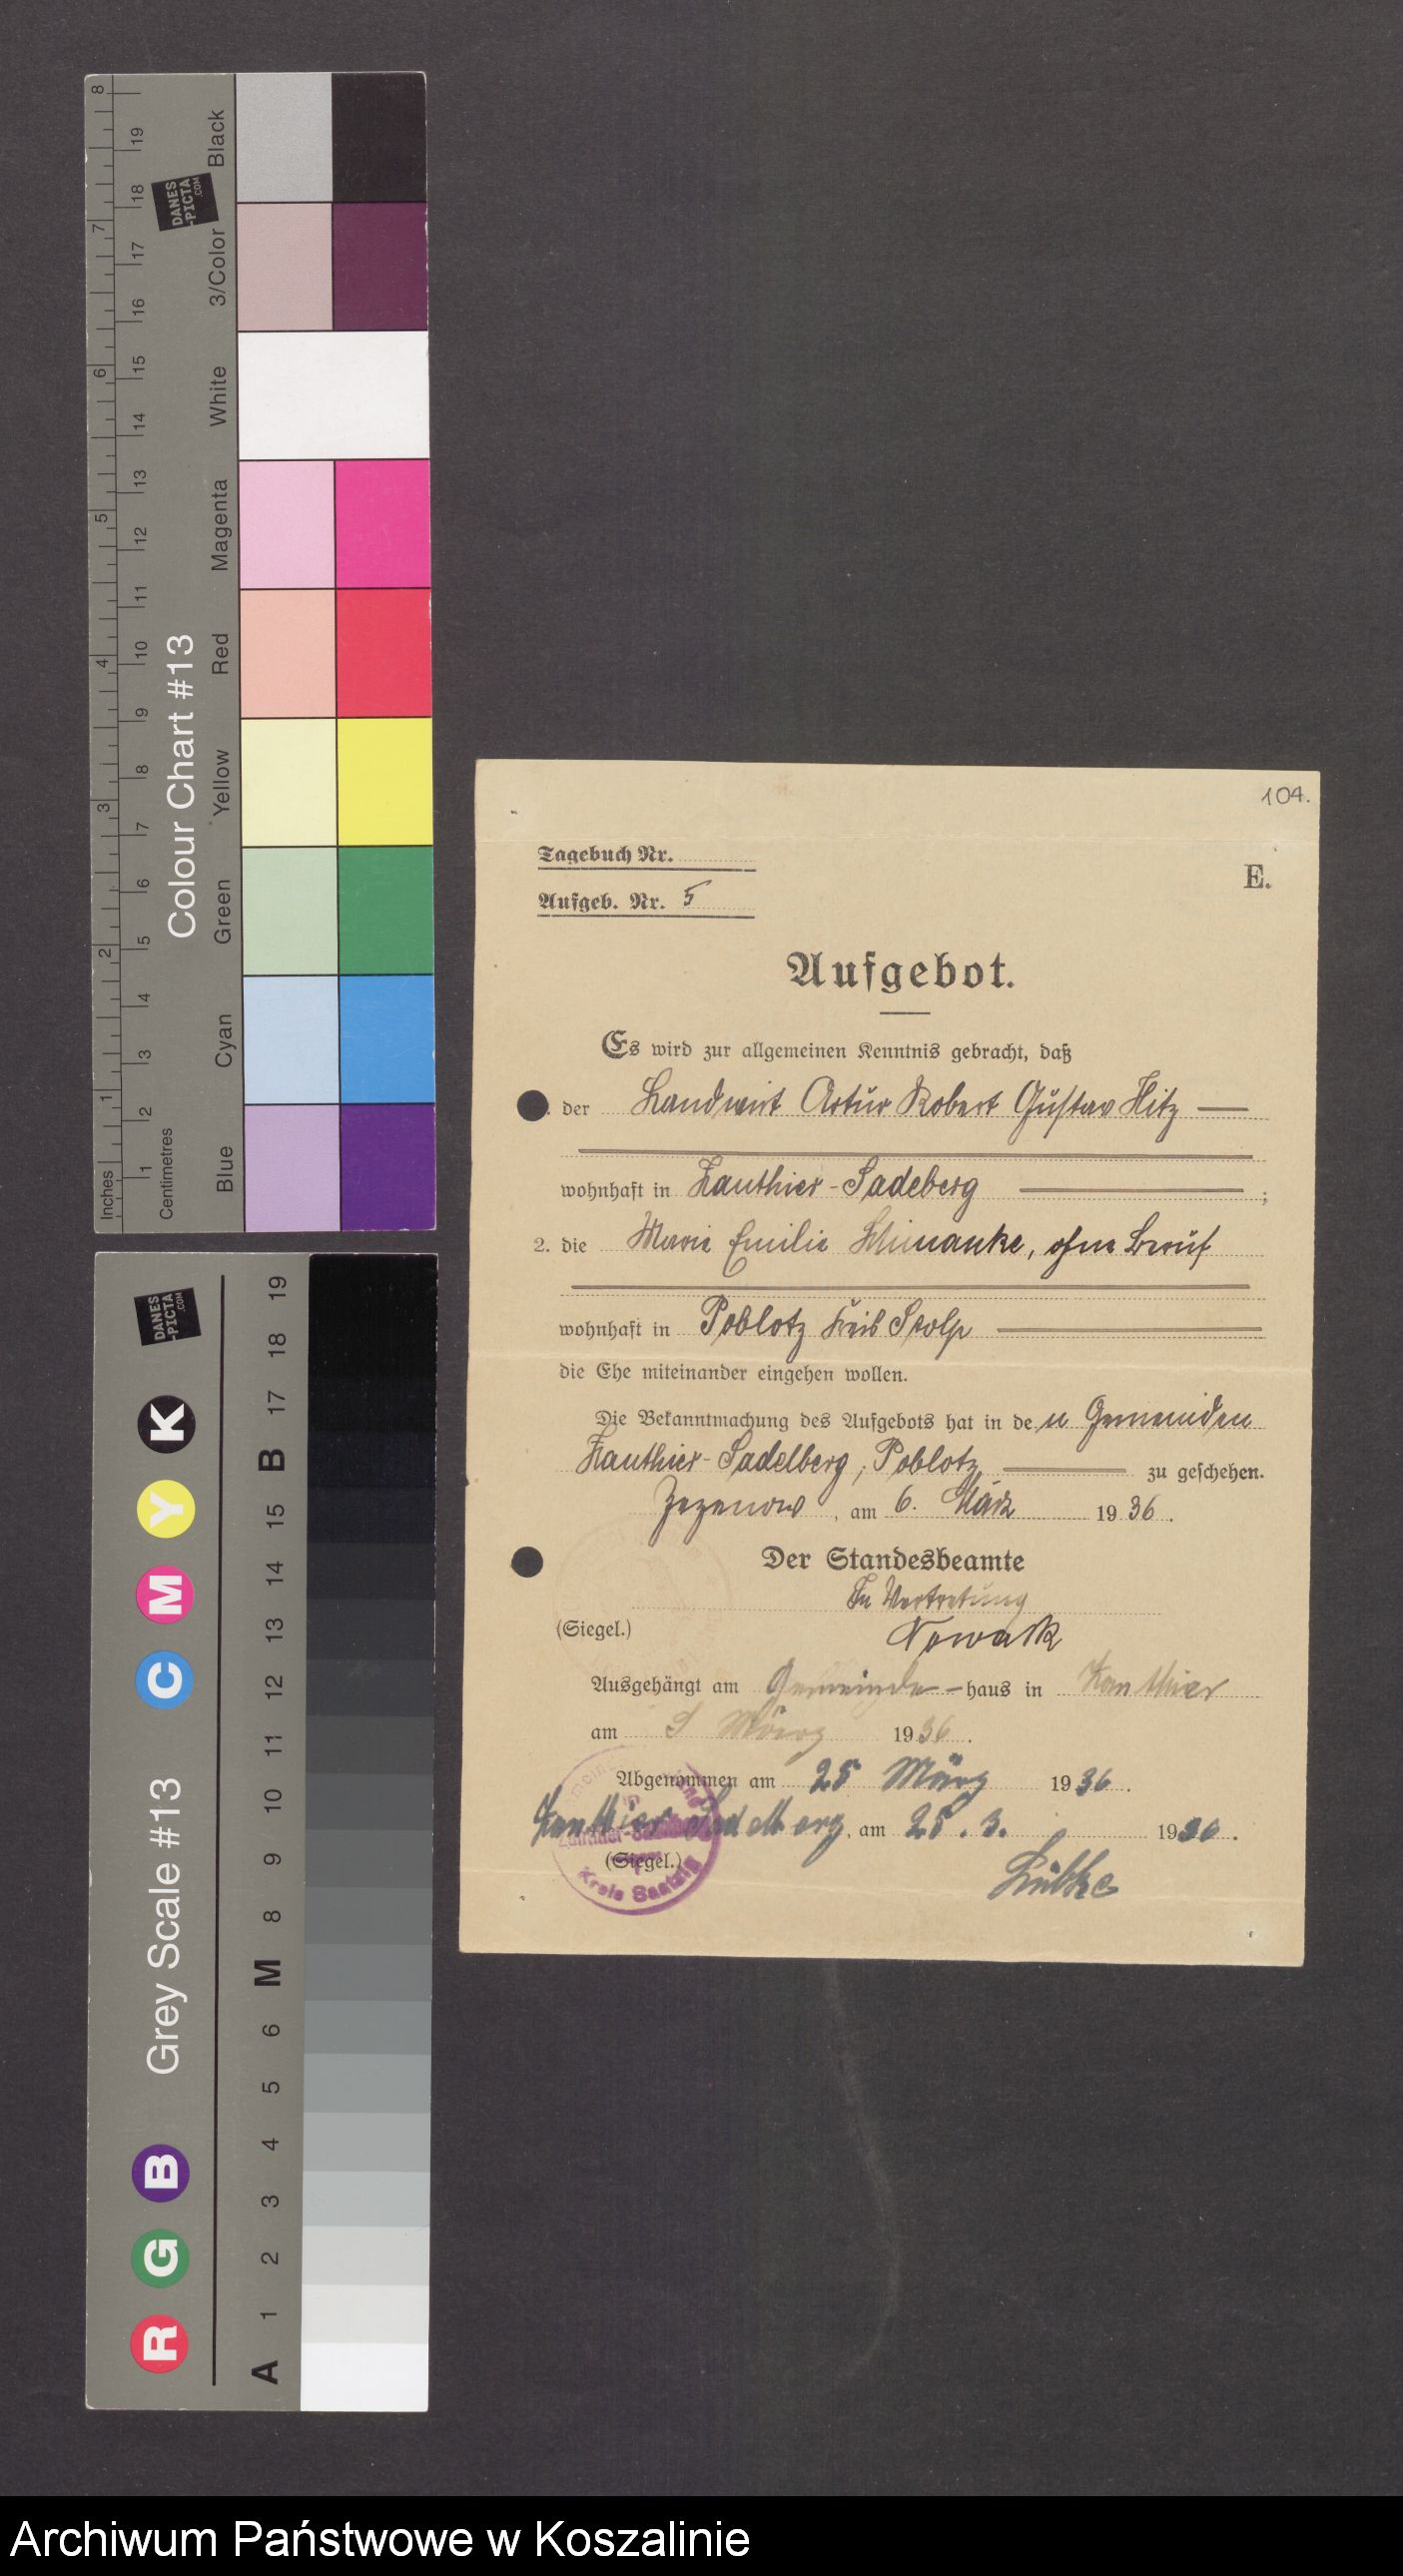 104.
Tagebuch Nr.
E.
Aufgeb. Nr. 5
Aufgebot.
Es wird zur allgemeinen Kenntnis gebracht, daß
der Landwirt Artur Robert Gustav Hitz
wohnhaft in Zanthier-Sadeberg ;
2. die Marie Emilie Schimanke, ohne Beruf
wohnhaft in Poblotz Kreis Stolp
die Ehe miteinander eingehen wollen.
Die Bekanntmachung des Aufgebots hat in den Gemeinden
Zanthier-Sadelberg, Poblotz zu geschehen.
Zezenow, am 6. März 1936.
Der Standesbeamte
In Vertretung
(Siegel.) Nowack
Ausgehängt am Gemeinde-haus in Zanthier
am 9 März 1936.
Abgenommen am 25 März 1936.
Zanthier Sadelberg, am 25. 3. 1936.
(Siegel.)
Kreis Saatzig
Lübke
8 7 6 5 4 3 2 1 Inches
19 18 17 16 15 14 13 12 11 10 9 8 7 6 5 4 3 2 1 Centimetres
DANES
-PICTA
.COM
Colour Chart #13
Black
3/Color
White
Magenta
Red
Yellow
Green
Cyan
Blue
DANES
-PICTA
.COM
R G B Grey Scale #13 C M Y K
A 1 2 3 4 5 6 M 8 9 10 11 12 13 14 15 B 17 18 19
Archiwum Państwowe w Koszalinie